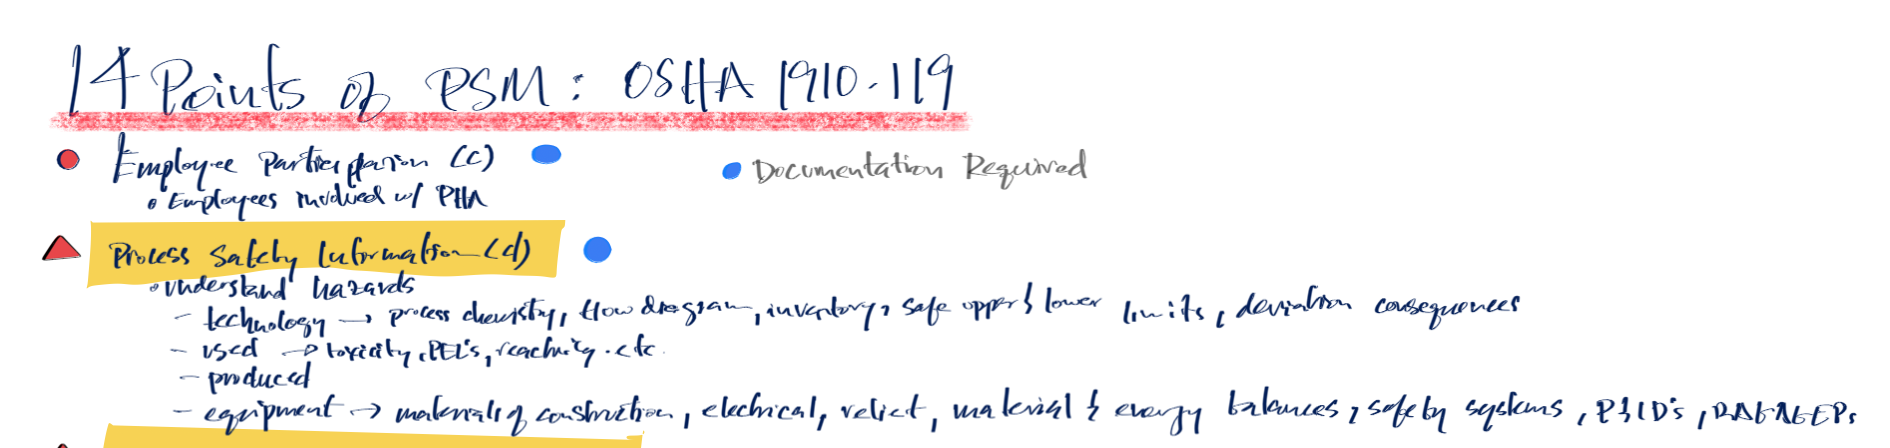 14 Points of PSM: OSHA 1910.119
Employee Participation (c)
Documentation Required
Employees involved w/ PHA
Process Safety Information (d)
understand hazards
- technology → process chemistry, flow diagram, inventory, safe upper & lower limits, deviation consequences
- used → toxicity, PEL's, reactivity. etc.
- produced
- equipment → materials of construction, electrical, relief, material & energy balances, safety systems, P&ID's, RAGAGEPs